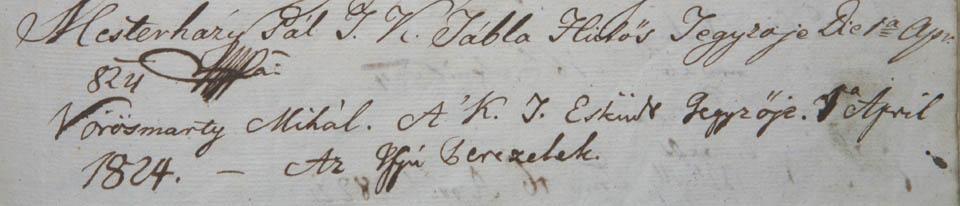 Mesterházy Pál T. K. Tábla Hütös Jegyzoje Die 1a Apr.
824
Vörösmarty Mihál. A' K. T. Esküdt Jegyzője. 1a April
1824. — Az Ifjú